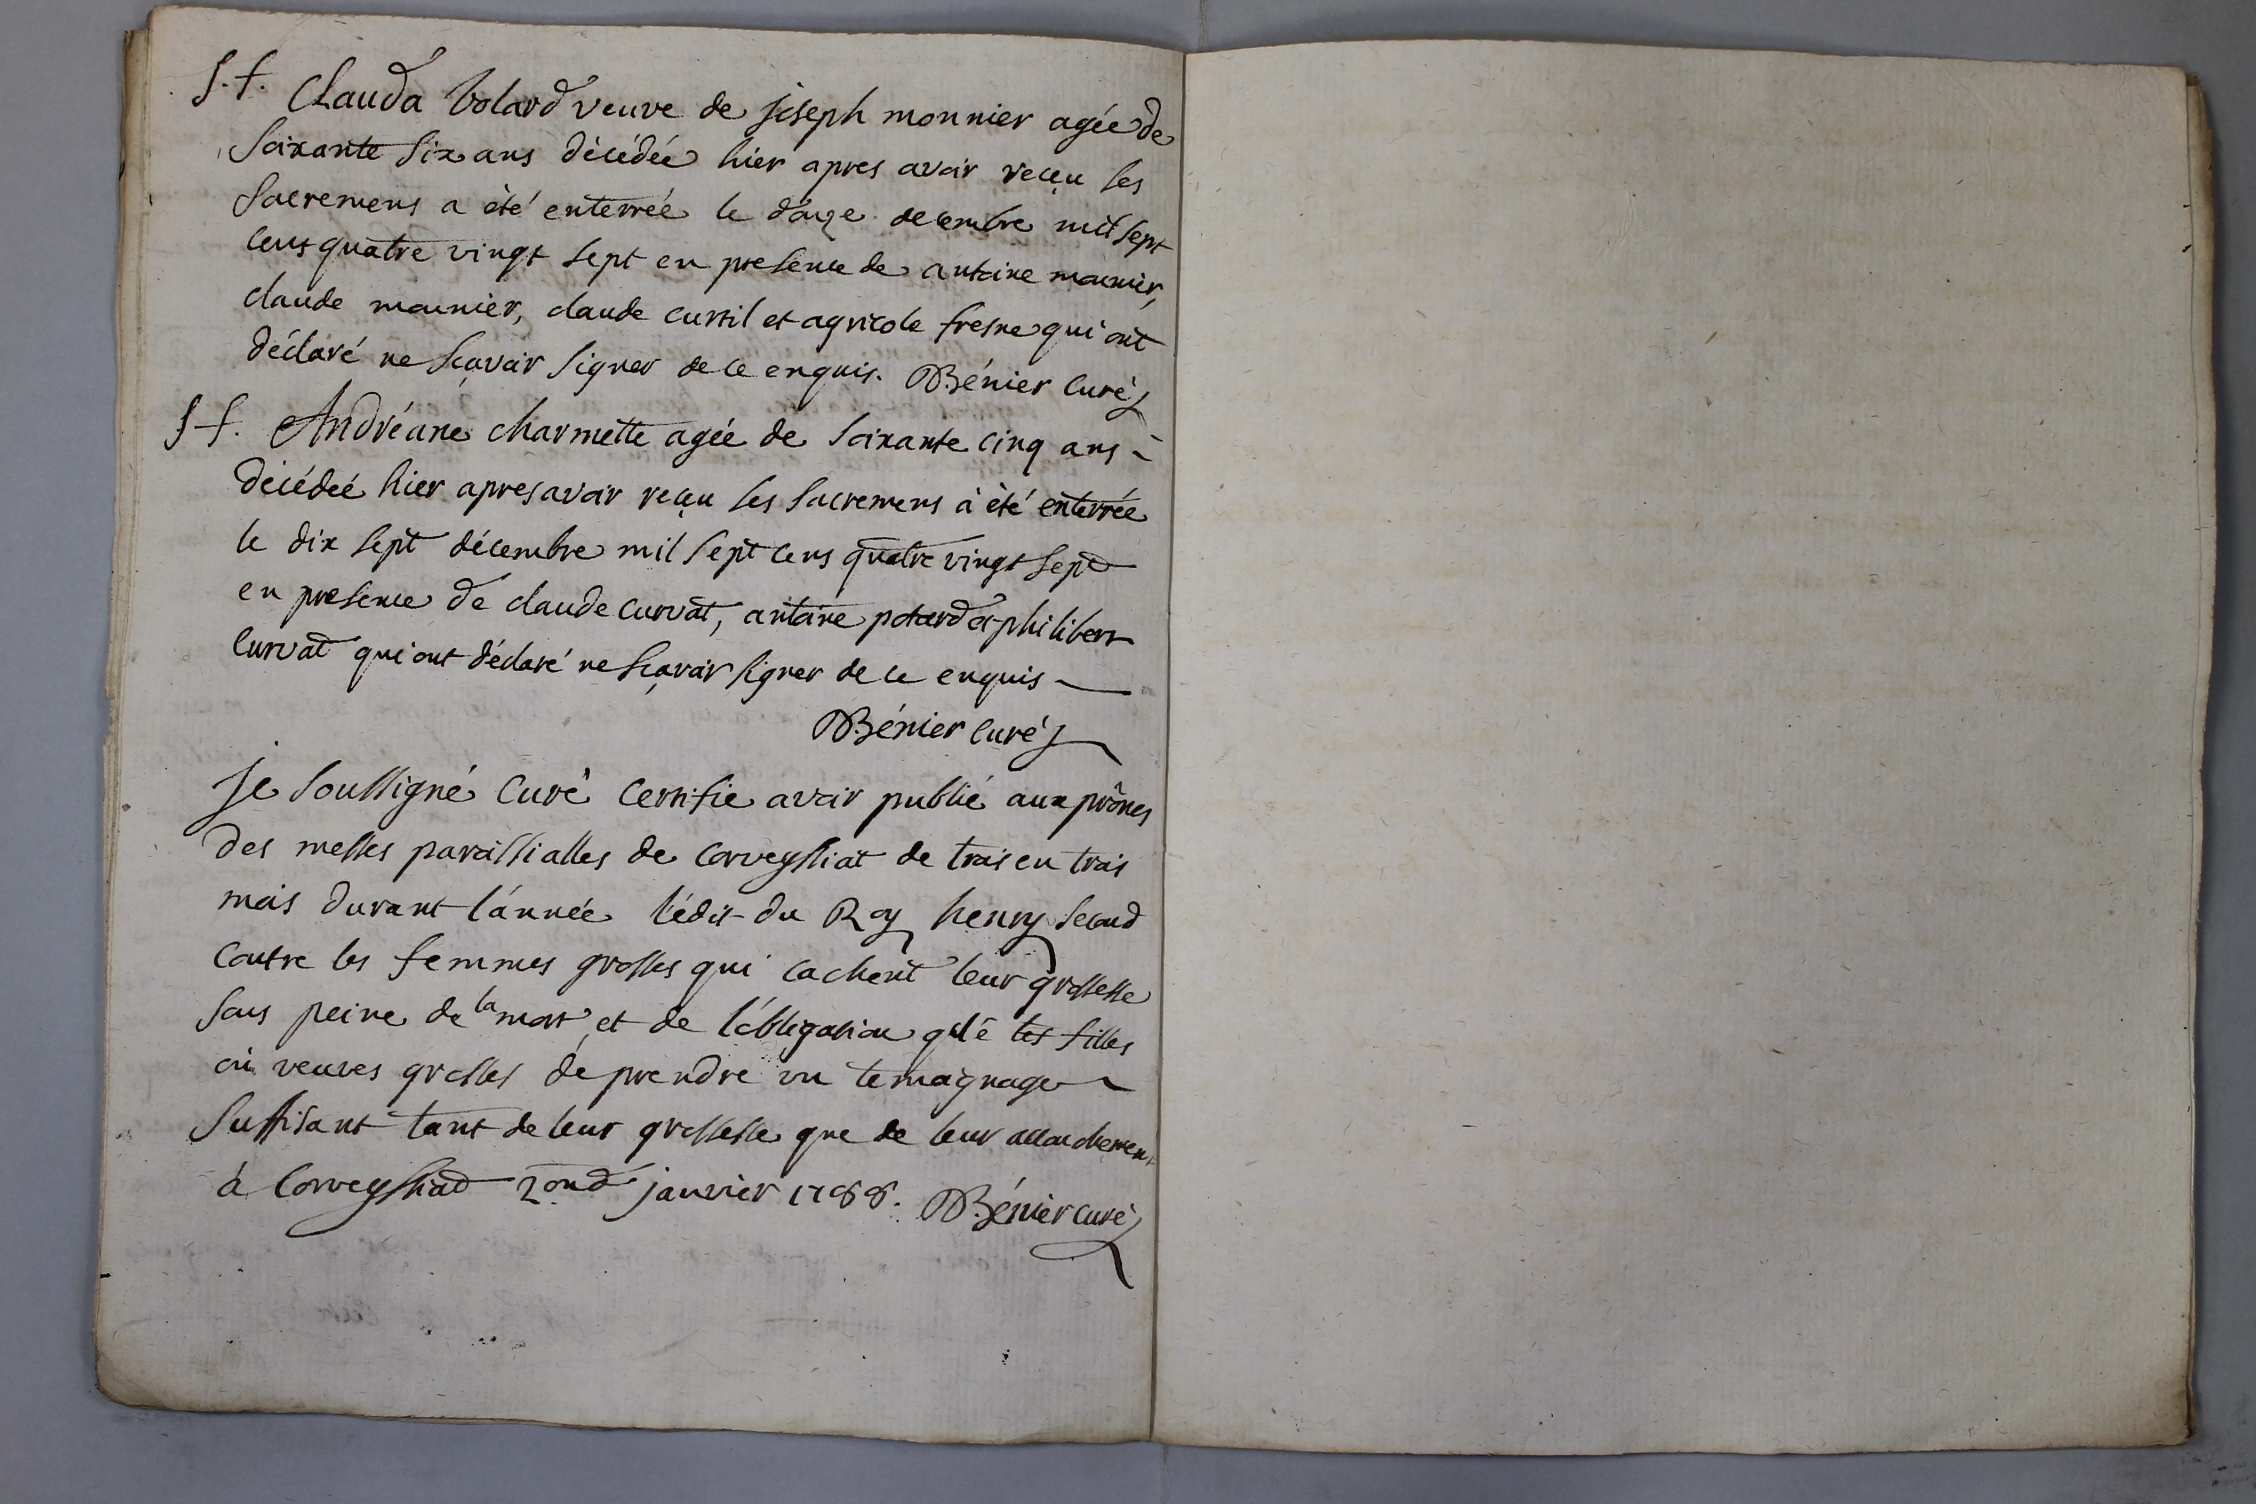 S.f. Clauda bolard veuve de joseph monnier agée de
Soixante Six ans décédée hier apres avoir reçeu les
Sacremens a été enterrée le douze decembre mil sept
cens quatre vingt sept en presence de antoine mounier,
claude mounier, claude curtil et agricole fresne qui ont
déclaré ne sçavoir signer de ce enquis. Bénier Curé
S.f. Andréane charmette agée de Soixante cinq ans
décédée hier apres avoir reçeu les Sacremens a été enterrée
le dix sept décembre mil Sept cens quatre vingt sept
en presence de claude curvat, antoine potard et philibert
Curvat qui ont déclaré ne sçavoir signer de ce enquis
Bénier Curé
Je soussigné Curé Certifie avoir publié aux prônes
des messes paroissialles de Corveyssiat de trois en trois
mois durant l'année l'édit du Roy henry second
contre les femmes grosses qui cachent leur grossesse
sous peine de la mort et de l'obligation les filles
ou veuves grosses de prendre un temoignage
suffisant tant de leur grossesse que de leur accouchement
à Corveyssiat 2ond janvier 1788. Bénier curé